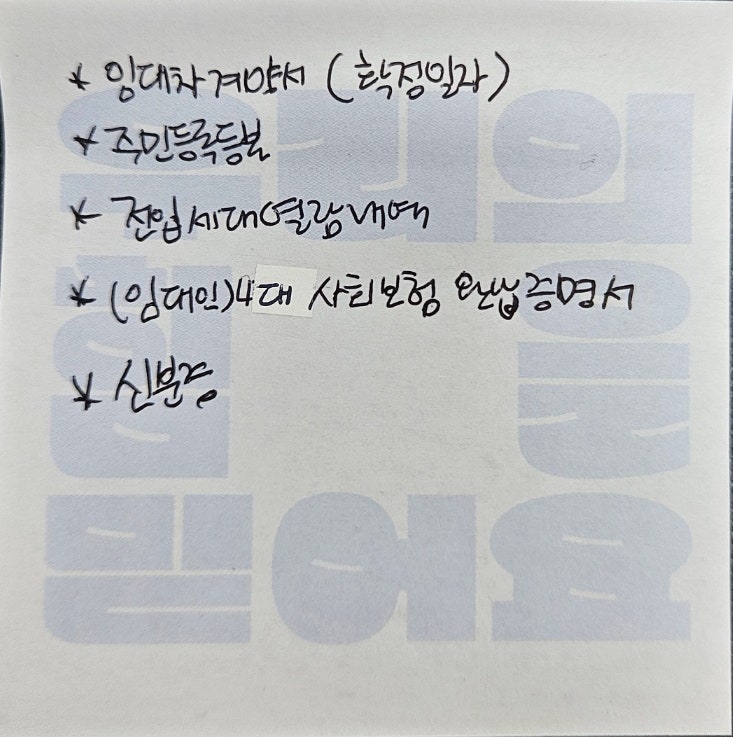 * 임대차계약서 (확정일자)
* 주민등록등본
* 전입세대열람내역
* (임대인)4대 사회보험 완납증명서
* 신분증